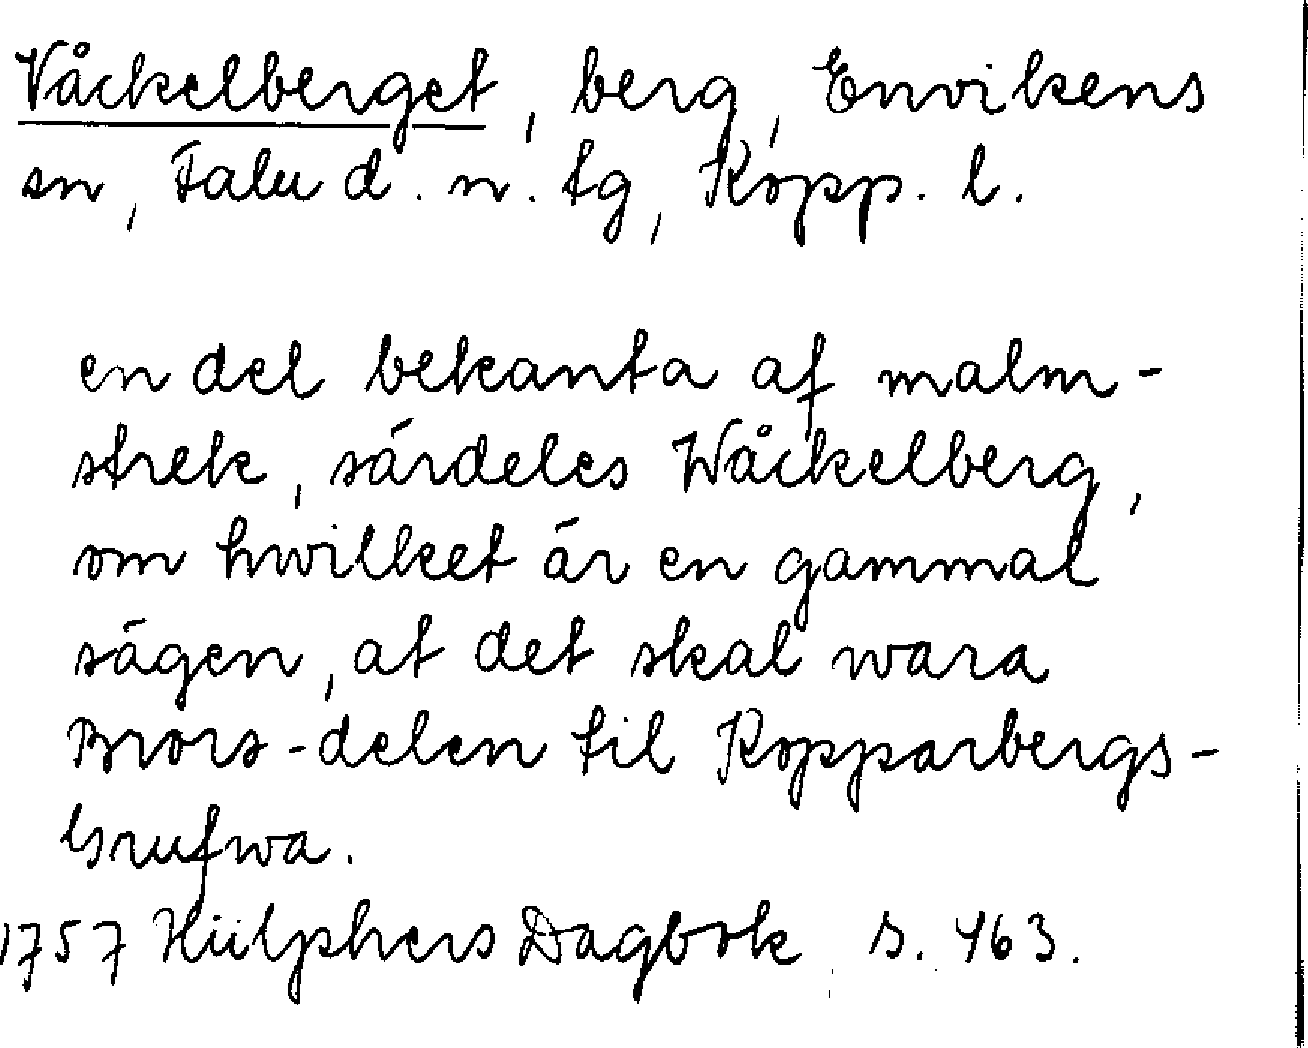 Våckelberget, berg, Envikens
sn, Falu d. n. tg, Kopp. l.
en del bekanta af malm-
strek, särdeles Wåckelberg,
om hwilket är en gammal
sägen, at det skal wara
Brors-delen til Kopparbergs-
Grufwa.
1757 Hülphers Dagbok s. 463.